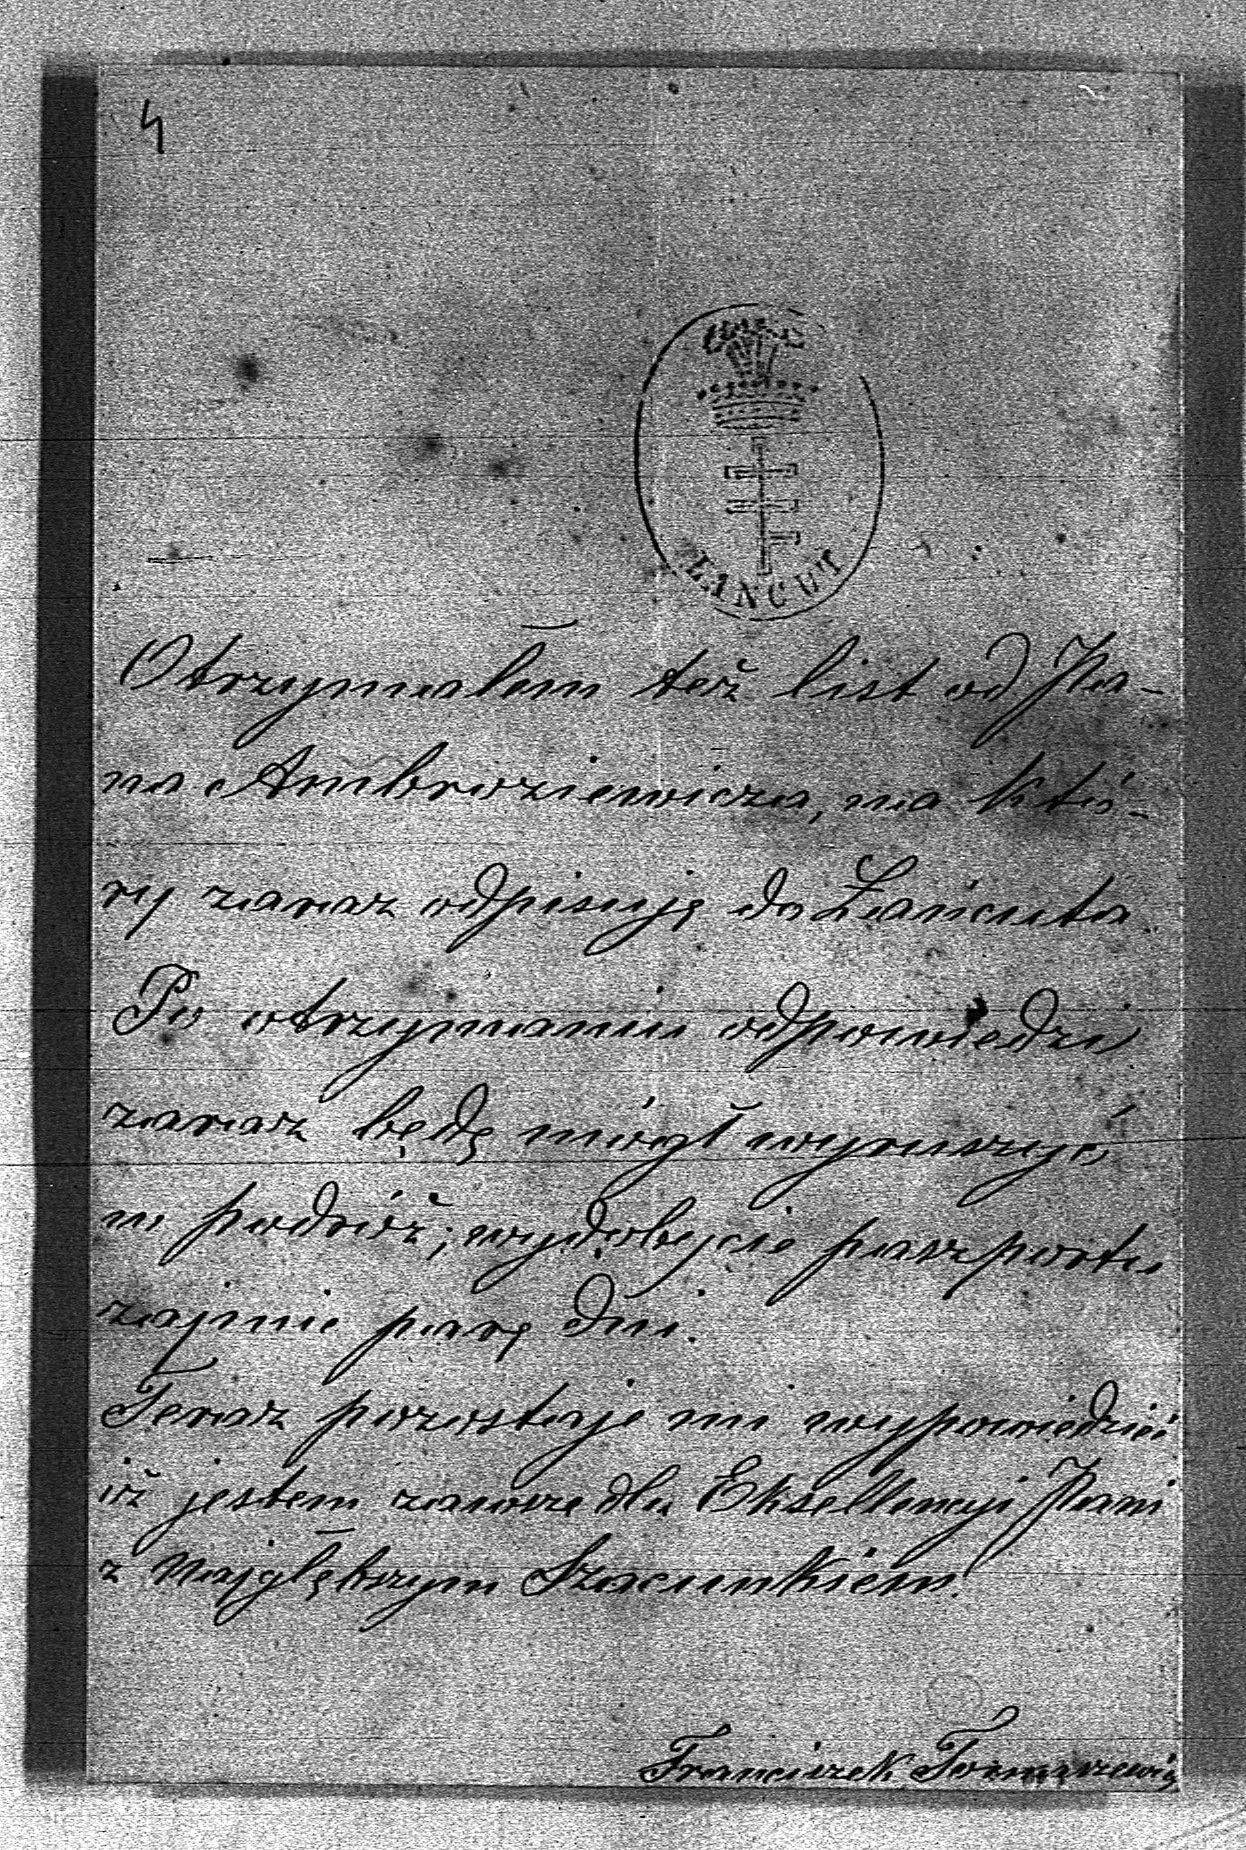 4
ŁAŃCUT
Otrzymałem też list od Pa-
na Ambroziewicza, na któ-
ry zaraz odpisuję do Łańcuta
Po otrzymaniu odpowiedzi
zaraz będę mógł wyruszyć
w podróż; wydobycie paszportu
zajmie parę dni.
Teraz pozostaje mi wypowiedzieć
iż jestem zawsze dla Ekscellencyi Pani
z Najgłębszym Szacunkiem.
Franciszek